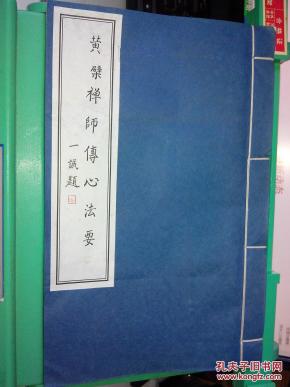 黄檗禅師傳心法要
一誠題
孔夫子旧书网